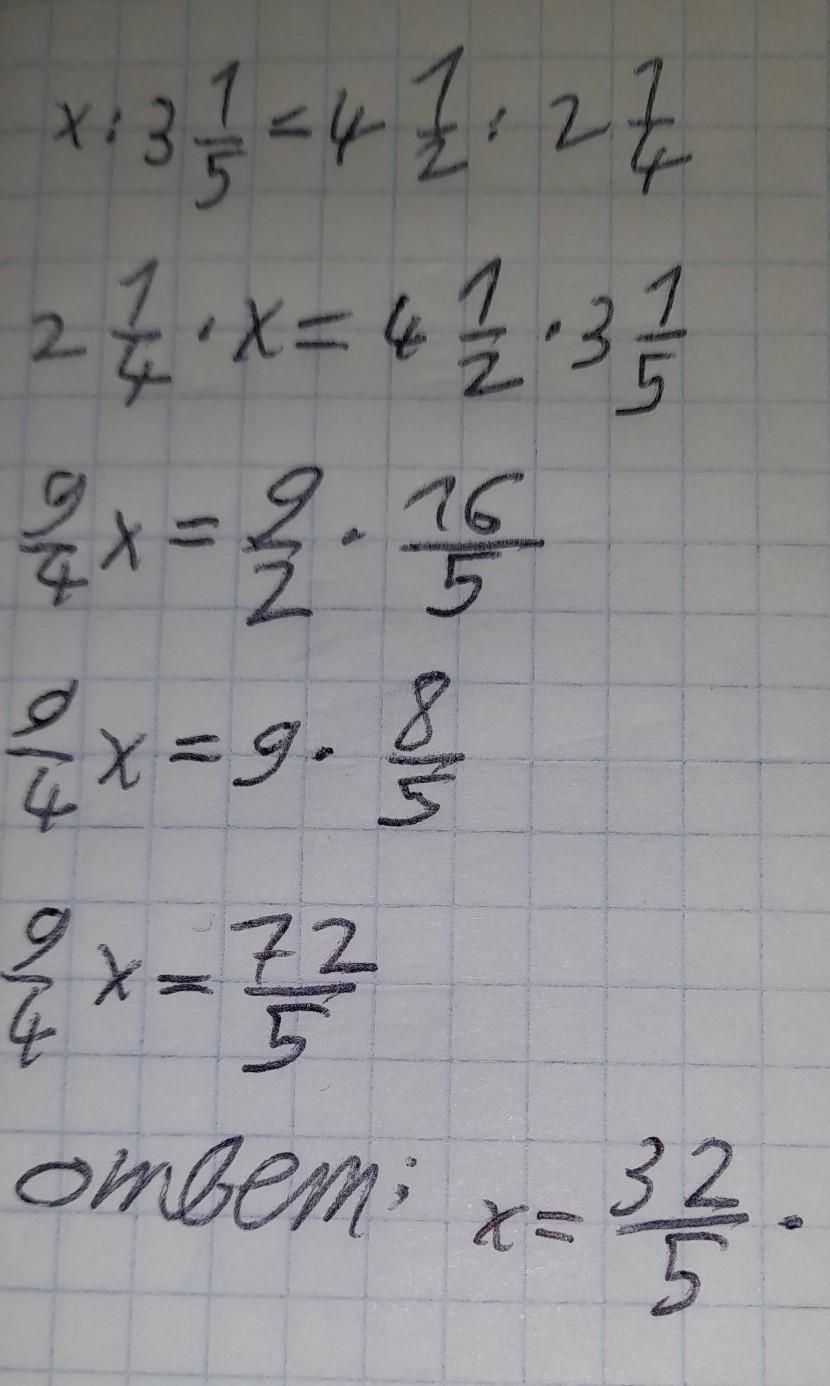 x : 3 1/5 = 4 1/2 : 2 1/4
2 1/4 · x = 4 1/2 · 3 1/5
9/4 x = 9/2 · 16/5
9/4 x = 9 · 8/5
9/4 x = 72/5
ответ: x = 32/5 .